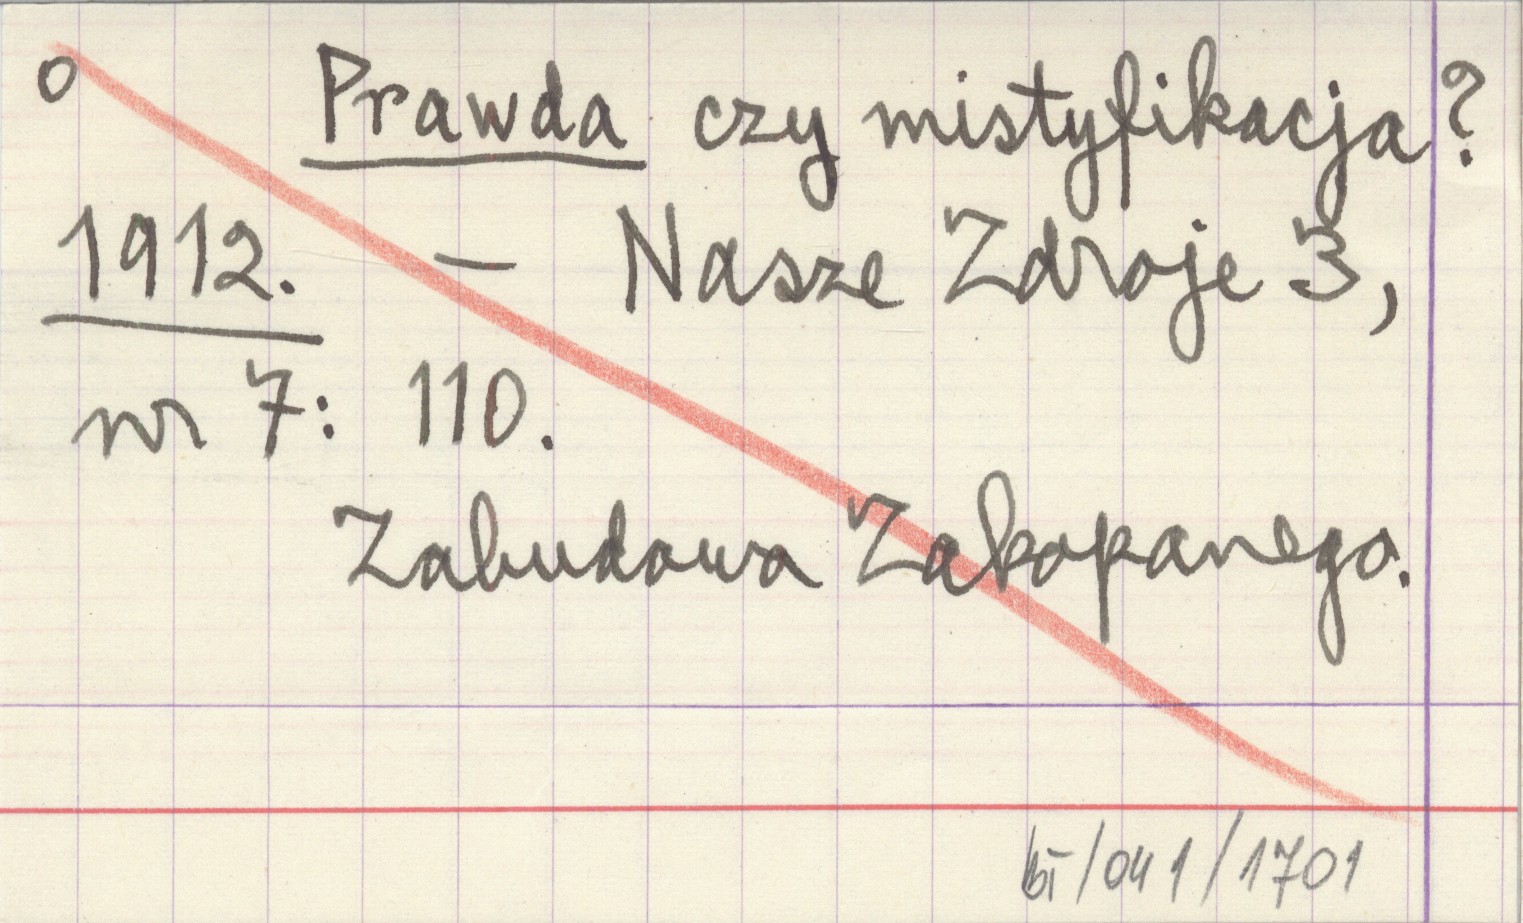 o Prawda czy mistyfikacja?
1912. – Nasze Zdroje 3,
nr 7: 110.
Zabudowa Zakopanego.
/041/1701